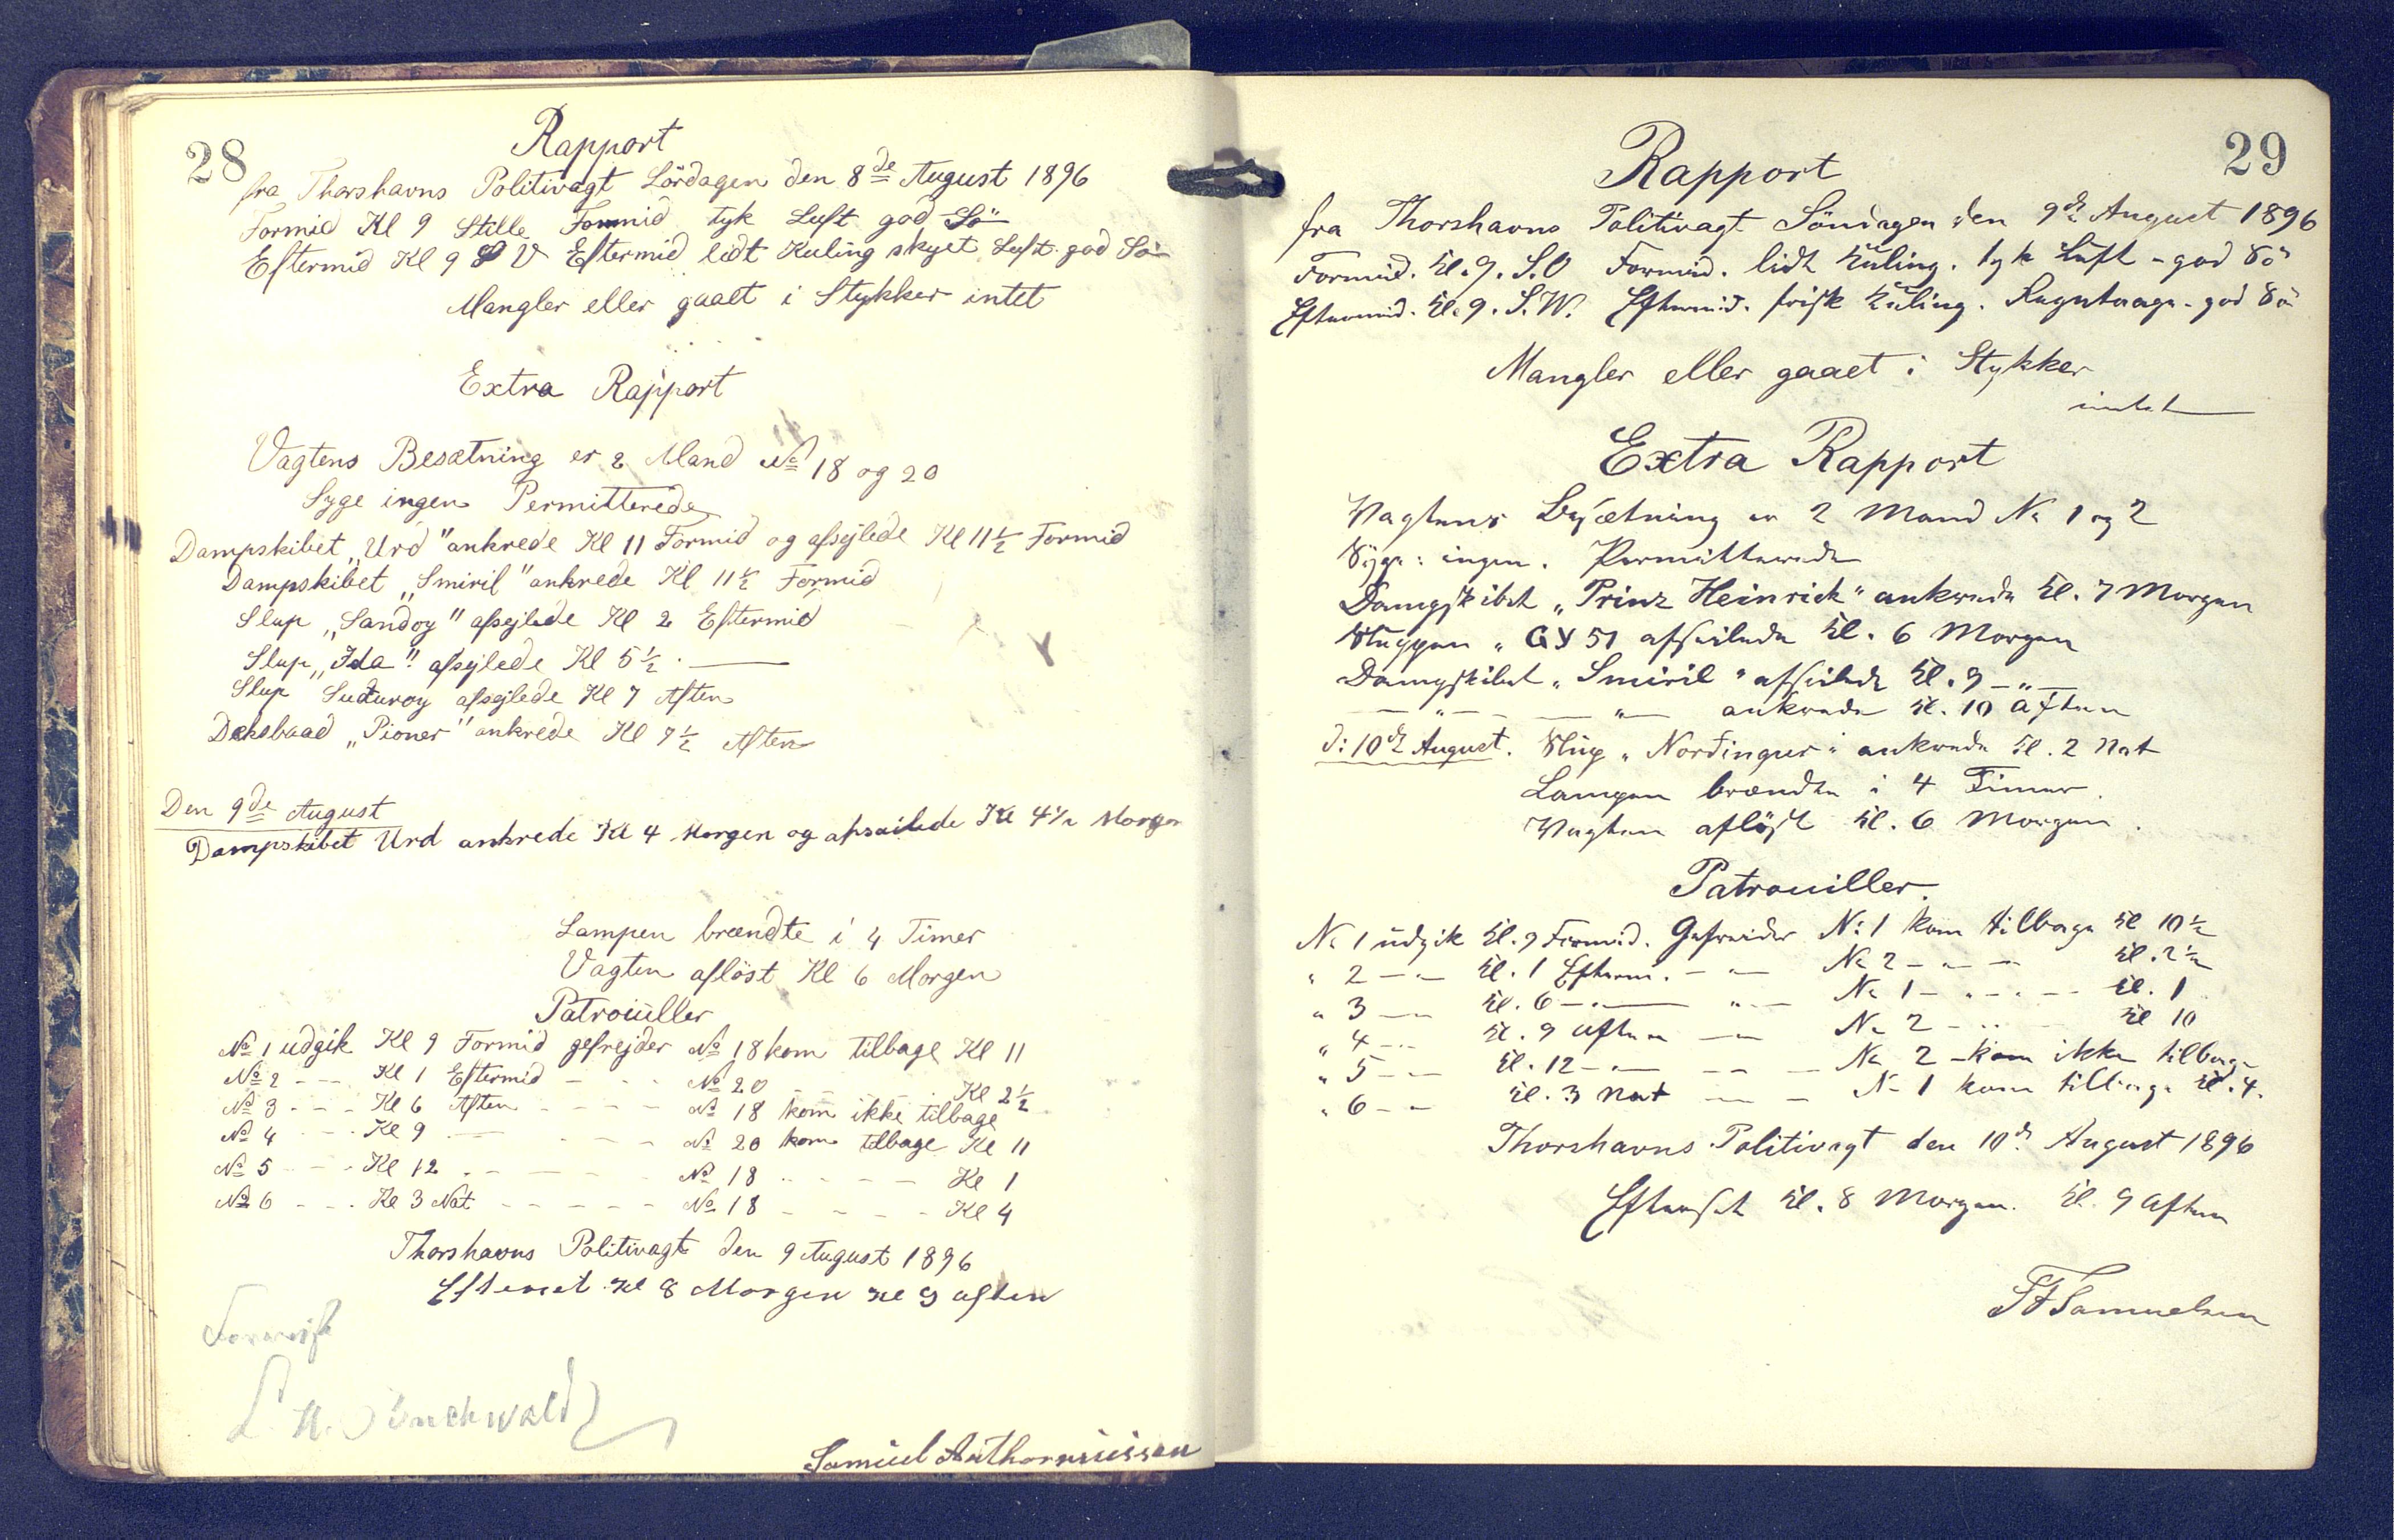 28
Rapport
fra Thorshavns Politivagt Lördagen den 8de August 1896
Formid Kl 9 Stille Formid tyk Luft god Sö
Eftermid Kl 9 S V Eftermid lidt Kuling skyet Luft god Sö
Mangler eller gaaet i Stykker intet
Extra Rapport
Vagtens Besætning er 2 Mand No 18 og 20
Syge ingen Permitterede
Dampskibet „Urd" ankrede Kl 11 Formid og afsejlede Kl 11½ Formid
Dampskibet „Smiril" ankrede Kl 11½ Formid
Slup „Sandoy" afsejlede Kl 2 Eftermid
Slup „Ida" afsejlede Kl 5½ . —
Slup Suduroy afsejlede Kl 7 Aften
Deksbaad „Pioner" ankrede Kl 7½ Aften
Den 9de August
Dampskibet Urd ankrede Kl 4 Morgen og afsailede Kl 4½ Morgen
Lampen brændte i 4 Timer
Vagten aflöst Kl 6 Morgen
Patrouiller
No 1 udgik Kl 9 Formid gefrejder No 18 kom tilbage Kl 11
No 2 - - - Kl 1 Eftermid - - - No 20 - - Kl 2½
No 3 - - - Kl 6 Aften - - - - No 18 kom ikke tilbage
No 4 - - - Kl 9 - - - - No 20 kom tilbage Kl 11
No 5 - - - Kl 12 - - - - - No 18 - - - - - Kl 1
No 6 - - - Kl 3 Nat - - - - - No 18 - - - - Kl 4
Thorshavns Politivagt den 9 August 1896
Efterset Kl 8 Morgen Kl 9 aften
Samuel Anthoniussen
29
Rapport
fra Thorshavns Politivagt Söndagen den 9de August 1896
Formid. Kl. 9. S.O Formid. lidt Kuling. tyk Luft - god Sö
Eftermid. Kl. 9. S.W. Eftermid. frisk Kuling. Regntaage - god Sö
Mangler eller gaaet i Stykker
intet
Extra Rapport
Vagtens Besætning er 2 Mand No 1 og 2
Syge: ingen. Permitterede
Dampskibet „Prinz Heinrich" ankrede Kl. 7 Morgen
Sluppen „GY 51 afseilede Kl. 6 Morgen
Dampskibet „Smiril" afseilede Kl. 9 — " —
— " — — " — ankrede Kl. 10 Aften
d: 10de August. Slup „Nordingur" ankrede Kl. 2 Nat
Lampen brændte i 4 Timer.
Vagten aflöst Kl. 6 Morgen.
Patrouiller.
No 1 udgik Kl. 9 Formid. Gefreider No 1 kom tilbage Kl 10½
" 2 - - Kl. 1 Efterm. - - No 2 - - - Kl. 2½
" 3 - - Kl. 6 - " - - " - No 1 - - - - Kl. 1
" 4 - - Kl. 9 Aften - - No 2 - - - Kl 10
" 5 - - Kl. 12 - - - - - No 2 - kom ikke tilbage
" 6 - - Kl. 3 Nat - - - No 1 kom tilbage Kl. 4.
Thorshavns Politivagt den 10de August 1896
Efterset Kl. 8 Morgen. Kl. 9 Aften
Samuelsen